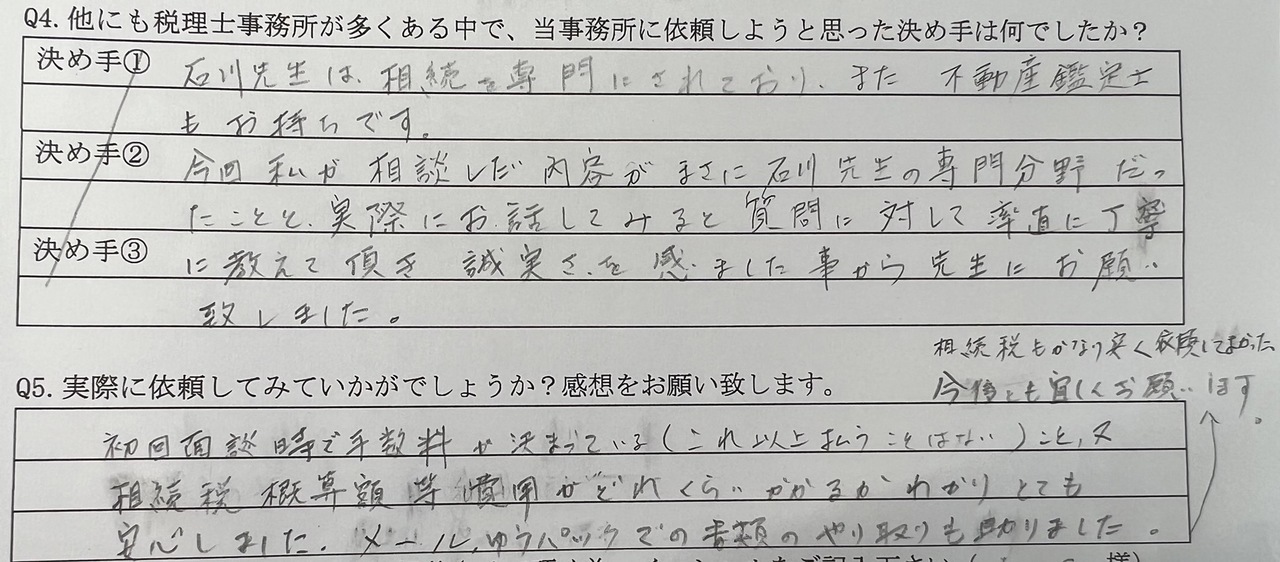 Q4. 他にも税理士事務所が多くある中で、当事務所に依頼しようと思った決め手は何でしたか？
決め手① 石川先生は、相続を専門にされており、また 不動産鑑定士
もお持ちです。
決め手② 今回私が相談しだ内容がまさに石川先生の専門分野だっ
たことと、実際にお話してみると質問に対して率直に丁寧
決め手③ に教えて頂き 誠実さを感じました事から先生にお願い
致しました。
相続税もかなり安く依頼してよかった
今後とも宜しくお願いします。
Q5. 実際に依頼してみていかがでしょうか？感想をお願い致します。
初回面談時で手数料が決まっている(これ以上払うことはない)こと、又
相続税概算額等費用がどれくらいかかるかわかりとても
安心しました。メール、ゆうパックでの書類のやり取りも助かりました。